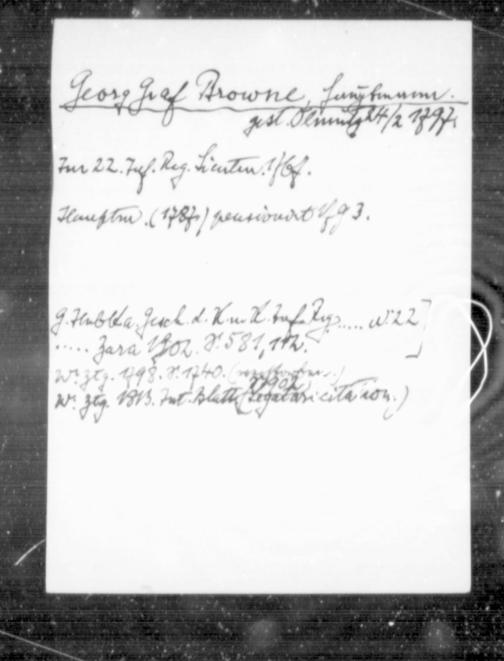 Georg Graf Browne, Hauptmann.
gest. Olmütz 24/2 1797.
Im 22. Inf. Reg. Lieuten. 176
Hauptm. (1787) pensioniert 1793.
G. Hubka, Gesch. d. K. u. K. Inf. Reg. .... N: 22
..... Zara 1902. S. 581,
Wr. Ztg. 1798. S. 1240.
Wr. Ztg. 1813. Int. Blatt (Legatarscitation.)